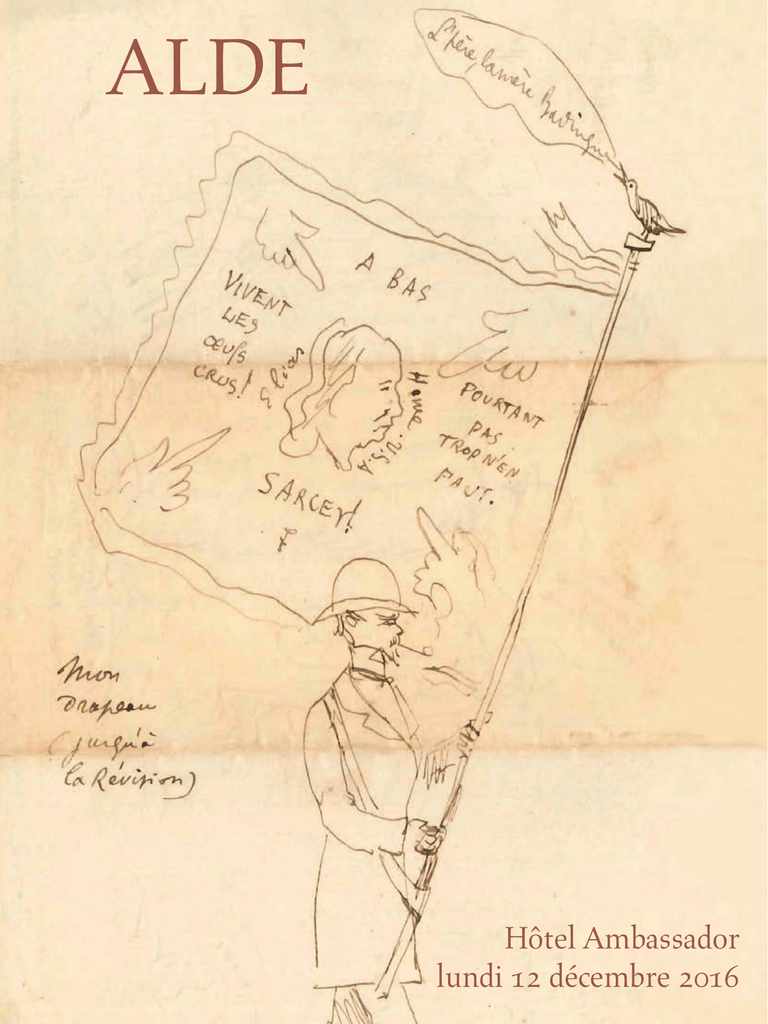 ALDE
L'Père, la mère Badingue
A BAS
VIVENT
LES
ŒUFS
CRUS!
Home
U.S.A
POURTANT
PAS
TROP N'EN
FAUT.
SARCEY!
Mon
Drapeau
(jusqu'à
la Révision)
Hôtel Ambassador
lundi 12 décembre 2016